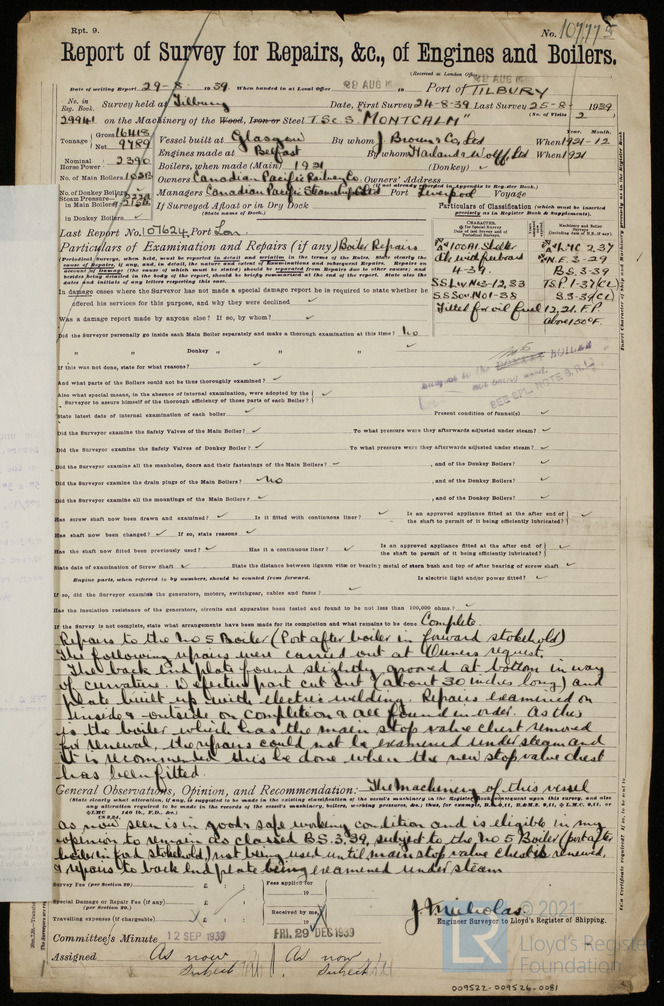 Rpt. 9.
No. 10777
Report of Survey for Repairs, &c., of Engines and Boilers.
(Received at London Office
Date of writing Report 29-8- 1939 When handed in at Local Office 29 AUG 19 Port of TILBURY
No. in Reg. Book. Survey held at Tilbury Date, First Survey 24-8-39 Last Survey 25-8- 1939
(No. of Visits 2
29941 on the Machinery of the Wood, Iron or Steel T.S.S. MONTCALM
Tonnage Gross 16418 Net 9789
Vessel built at Glasgow By whom J Brown & Co, Ltd When 1921-12
Year. Month.
Engines made at Belfast By whom Harland & Wolff Ltd When 1921
Nominal Horse Power 2390
Boilers, when made (Main) 1921 (Donkey)
No. of Main Boilers
Owners Canadian Pacific Railway Co. Owners' Address
(if not already recorded in Appendix to Register Book.)
No. of Donkey Boilers
Managers Canadian Pacific Steamships Ltd Port Liverpool Voyage
Steam Pressure in Main Boilers
in Donkey Boilers
If Surveyed Afloat or in Dry Dock
(State name of Dock.)
Particulars of Classification (which must be inserted precisely as in Register Book & Supplements).
Last Report No. 107624 Port Lon.
Particulars of Examination and Repairs (if any) Boiler Repairs
100A1 Shelter dk with freeboard 4-39.
SS Lw No3-12,33
SS Sou No1-38
Fitted for oil fuel 12,21. F.P. above 150°F.
LMC 2,37
N.E. 3-29
B.S. 3-39
TS.P. 1-37(CL)
S.3-39(CL)
In damage cases where the Surveyor has not made a special damage report he is required to state whether he
offered his services for this purpose, and why they were declined
Was a damage report made by anyone else? If so, by whom?
Did the Surveyor personally go inside each Main Boiler separately and make a thorough examination at this time? No
" " Donkey " " "
If this was not done, state for what reasons?
SEE SPL. NOTE S.R.L.
And what parts of the Boilers could not be thus thoroughly examined?
Also what special means, in the absence of internal examination, were adopted by the
Surveyor to assure himself of the thorough efficiency of those parts of each Boiler?
State latest date of internal examination of each boiler Present condition of funnel(s)
Did the Surveyor examine the Safety Valves of the Main Boiler? To what pressure were they afterwards adjusted under steam?
Did the Surveyor examine the Safety Valves of Donkey Boiler? To what pressure were they afterwards adjusted under steam?
Did the Surveyor examine all the manholes, doors and their fastenings of the Main Boilers? , and of the Donkey Boilers?
Did the Surveyor examine the drain plugs of the Main Boilers? No , and of the Donkey Boilers?
Did the Surveyor examine all the mountings of the Main Boilers? , and of the Donkey Boilers?
Has screw shaft now been drawn and examined? Is it fitted with continuous liner? Is an approved appliance fitted at the after end of the shaft to permit of it being efficiently lubricated?
Has shaft now been changed? If so, state reasons
Has the shaft now fitted been previously used? Has it a continuous liner? Is an approved appliance fitted at the after end of the shaft to permit of it being efficiently lubricated?
State date of examination of Screw Shaft State the distance between lignum vitæ or bearing metal of stern bush and top of after bearing of screw shaft
Engine parts, when referred to by numbers, should be counted from forward. Is electric light and/or power fitted?
If so, did the Surveyor examine the generators, motors, switchgear, cables and fuses?
Has the insulation resistance of the generators, circuits and apparatus been tested and found to be not less than 100,000 ohms.?
If the Survey is not complete, state what arrangements have been made for its completion and what remains to be done Complete.
Repairs to the No 5 Boiler (Port after boiler in forward stokehold)
The following repairs were carried out at Owners request.
The back end plate found slightly grooved at bottom in way
of curvature. Defective part cut out (about 30 inches long) and
plate built up with electric welding. Repairs examined on
inside & outside on completion & all found in order. As this
is the boiler which has the main stop valve chest removed
for renewal, the repairs could not be examined under steam and
it is recommended this be done when the new stop valve chest
has been fitted.
General Observations, Opinion, and Recommendation:— The machinery of this vessel
(State clearly what alteration, if any, is suggested to be made in the existing classification of the vessel's machinery in the Register Book consequent upon this survey, and also
as now seen is in good & safe working condition and is eligible in my
opinion to remain as classed B.S. 3.39, subject to the No 5 Boiler (port after
boiler in fwd stokehold) not being used until main stop valve chest is renewed,
& repairs to back end plate being examined under steam
Survey Fee (per Section 29) £ : :
Special Damage or Repair Fee (if any) (per Section 29.) £ : :
Travelling expenses (if chargeable) £ : :
Fees applied for 19
Received by me, 19
J. Nicholas
Engineer Surveyor to Lloyd's Register of Shipping.
Committee's Minute 12 SEP 1939 FRI. 29 DEC 1939
Assigned As now Subject As now Subject
© 2021
LR
Lloyd's Register
Foundation
009522-009526-0081